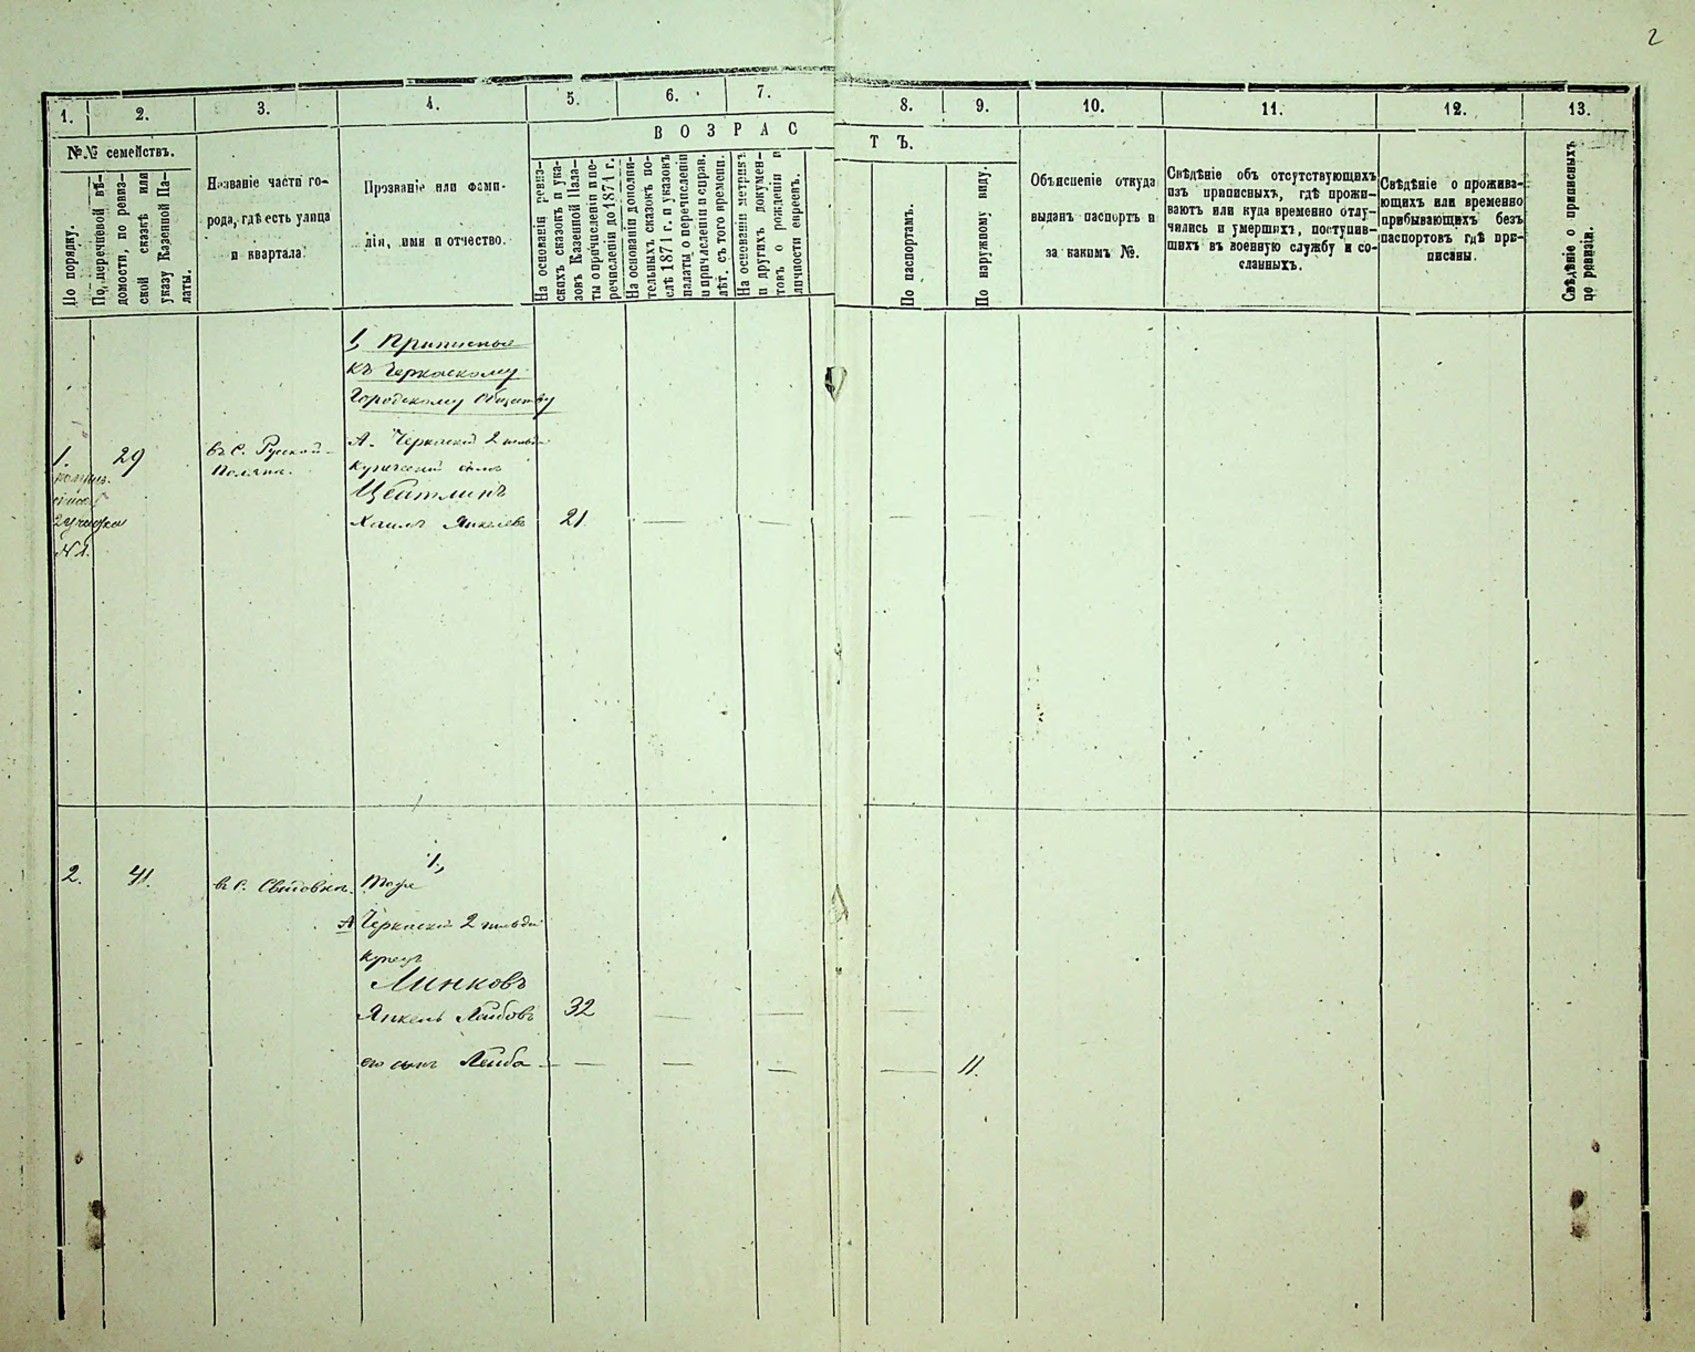 2
1. 2. 3. 4. 5. 6. 7. 8. 9. 10. 11. 12. 13.
№№ семействъ.
По порядку.
По перечневой вѣ-
домости, по ревиз-
ской сказкѣ или
указу Казенной Па-
латы.
Названіе части го-
рода, гдѣ есть улица
и квартала.
Прозваніе или фами-
лія, имя и отчество.
ВОЗРАСТЪ.
На основаніи ревиз-
скихъ сказокъ и ука-
зовъ Казенной Пала-
ты о причисленіи и пе-
речисленіи до 1871 г.
На основаніи дополни-
тельныхъ сказокъ по-
слѣ 1871 г. и указовъ
палаты о перечисленіи
и причисленіи и справ.
лѣт. съ того времени.
На основаніи метрикъ
и другихъ докумен-
товъ о рожденіи и
личности евреевъ.
По паспортамъ.
По наружному виду.
Объясненіе откуда
выданъ паспортъ и
за какимъ №.
Свѣдѣніе объ отсутствующихъ
изъ приписныхъ, гдѣ прожи-
ваютъ или куда временно отлу-
чились и умершихъ, поступив-
шихъ въ военную службу и со-
сланныхъ.
Свѣдѣніе о прожива-
ющихъ или временно
прибывающихъ безъ
паспортовъ гдѣ при-
писаны.
Свѣдѣніе о приписныхъ
по ревизіи.
1, Приписные
къ Черкаскому
Городскому Обществу
1. 29 въ с. Русской-
Поляна.
А. Черкаскій 2 гильдіи
Купеческій сынъ
Цейтлинъ
Хаимъ Янкелевъ 21 — — — —
2 участка
№ 1.
1,
2. 41. въ с. Свидовка.
А Черкаскій 2 гильдіи
Купецъ
Линковъ
Янкель Лейбовъ 32 — — —
его сынъ Лейба — — — — — 11.